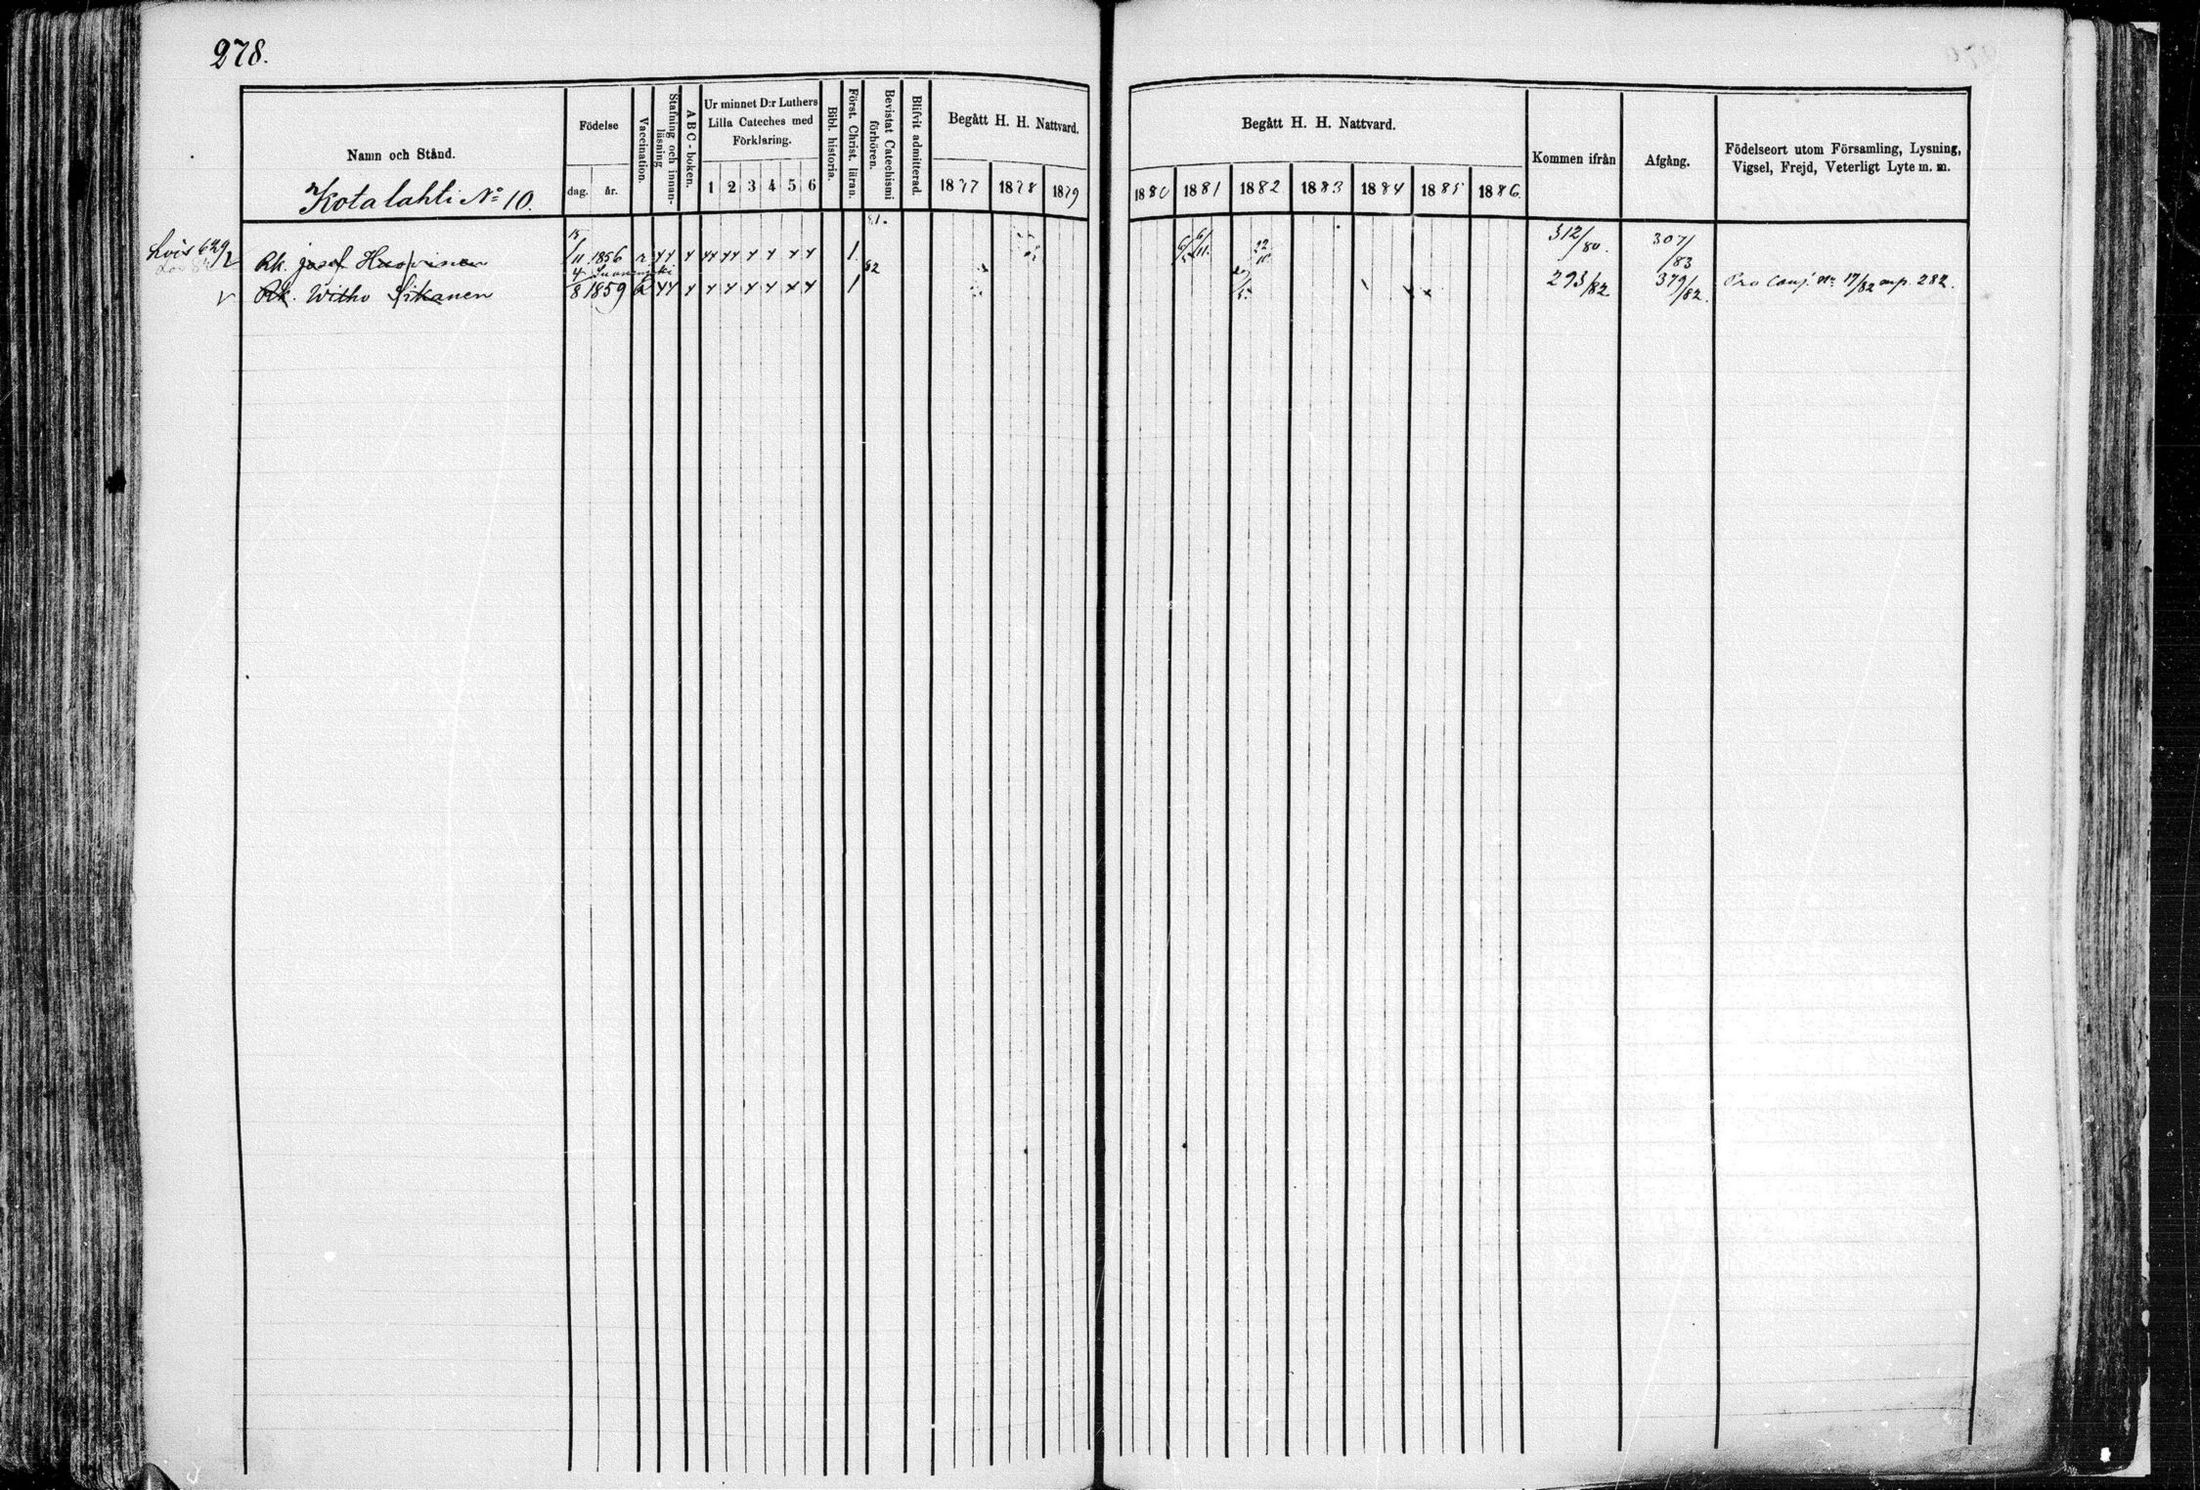 278.
Namn och Stånd.
Kotalahti № 10.
Födelse
dag. år.
Vaccination.
Stafning och innan-läsning
ABC-boken.
Ur minnet D:r Luthers
Lilla Cateches med
Förklaring.
1 2 3 4 5 6
Bibl. historia.
Först. Christ. läran.
Bevistat Catechismi förhören.
Blifvit admitterad.
Begått H. H. Nattvard.
1877 1878 1879
Begått H. H. Nattvard.
1880 1881 1882 1883 1884 1885 1886.
Kommen ifrån
Afgång.
Födelseort utom Församling, Lysning,
Vigsel, Frejd, Veterligt Lyte m. m.
Rk. Josef Huovinen /11 1856 1. 81. 6/11. 22 312/80. 307/83
Rk. Witho Sikanen 4/8 1859 1 82 293/82 379/82. Pro Conj. 17/82 282.